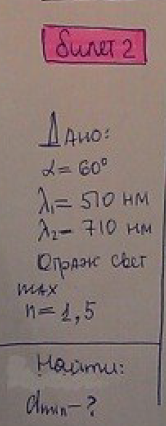 билет 2
Дано:
α = 60°
λ₁ = 510 нм
λ₂ = 710 нм
Отраж свет
max
n = 1,5
Найти:
dmin - ?